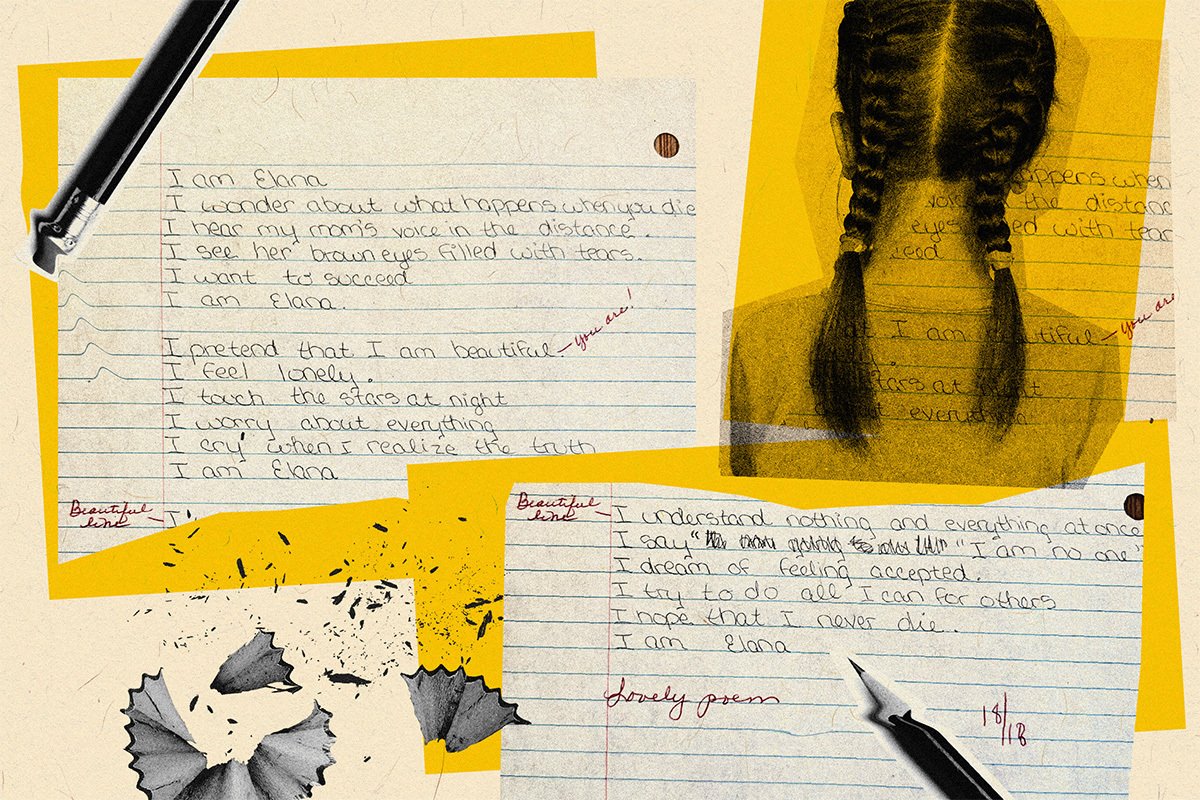 I am Elana
I wonder about what happens when you die
I hear my mom's voice in the distance.
I see her brown eyes filled with tears.
I want to succeed
I am Elana.
I pretend that I am beautiful – you are!
I feel lonely.
I touch the stars at night
I worry about everything
I cry when I realize the truth
I am Elana
Beautiful
line – I
appens when
voice in the distanc
eyes ed with tear
ceed
at I am beautiful – you are
stars at night
about everything
Beautiful
line – I understand nothing and everything at once
I say " "I am no one"
I dream of feeling accepted.
I try to do all I can for others
I hope that I never die.
I am Elana
Lovely poem
18/18